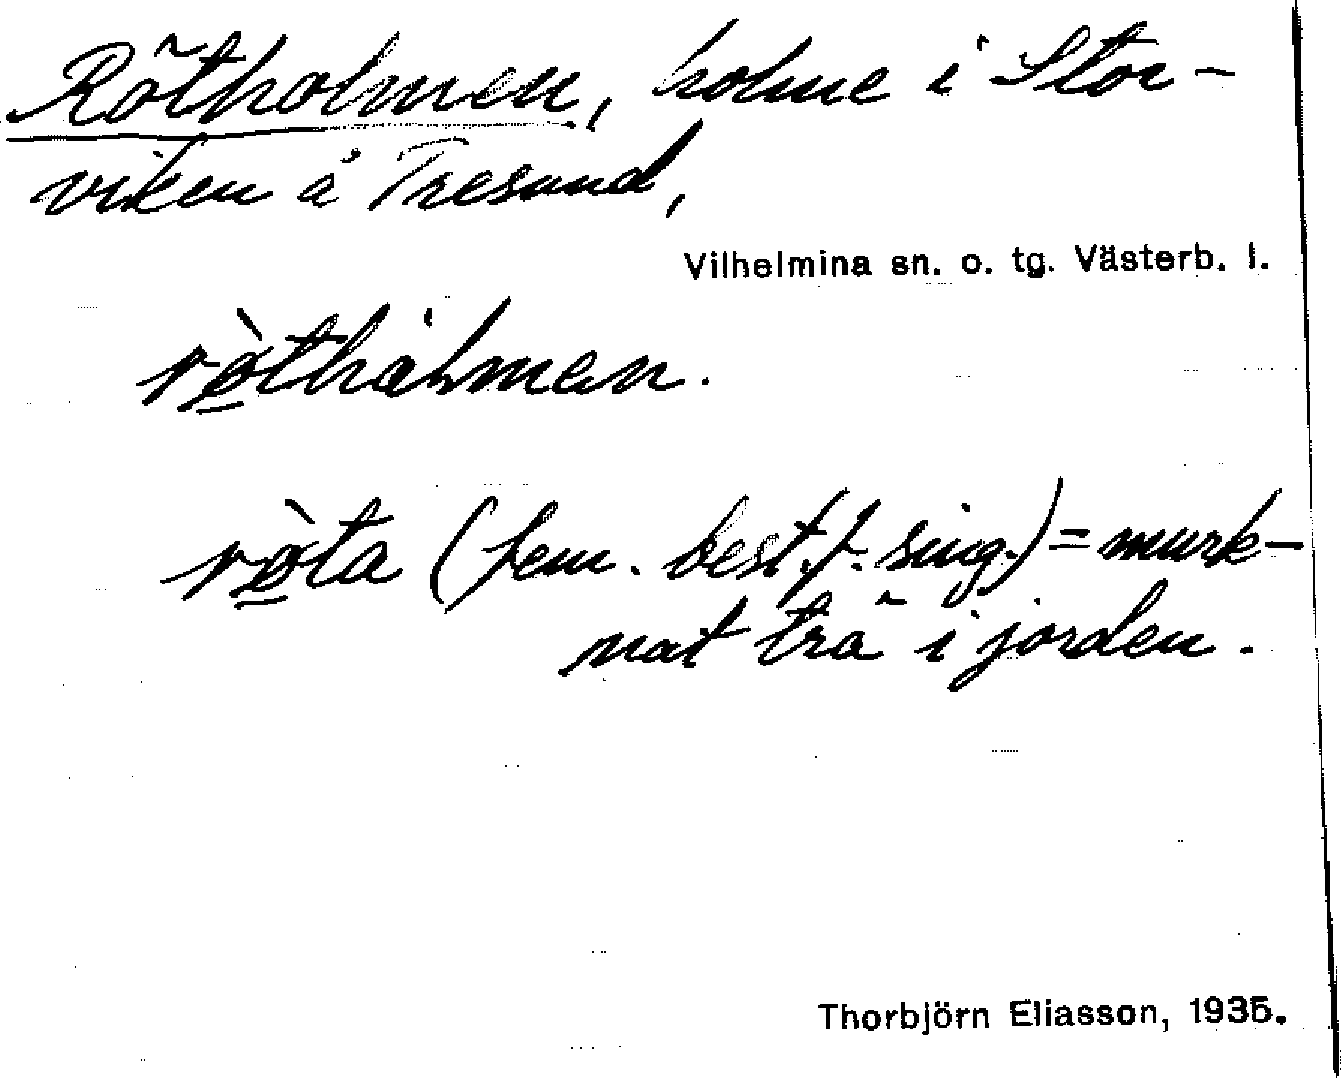 Rötholmen, holme i Stor-
viken å Tresund,
Vilhelmina sn. o. tg. Västerb. l.
rø̀thålman.
rø̀ta (fem. best. f. sing.) = murk-
nat trä i jorden.
Thorbjörn Eliasson, 1935.